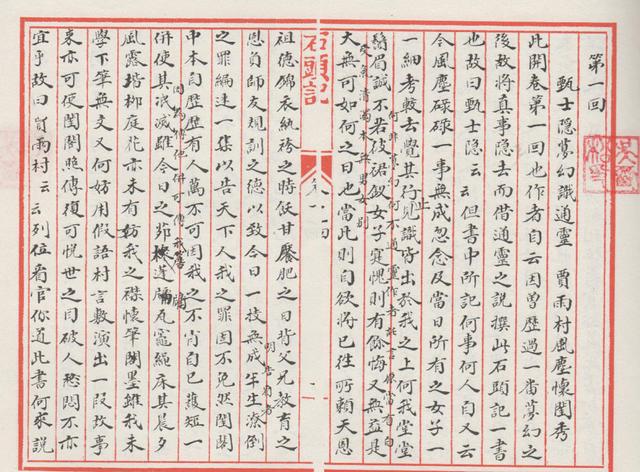 第一回
甄士隱夢幻識通靈　賈雨村風塵懷閨秀
此開卷第一回也作者自云因曾歷過一番夢幻之
後故將真事隱去而借通靈之說撰此石頭記一書
也故曰甄士隱云云但書中所記何事何人自又云
今風塵碌碌一事無成忽念及當日所有之女子一
一細考較去覺其行止見識皆出於我之上何我堂堂
鬚眉誠不若彼裙釵女子實愧則有餘悔又無益是
大無可如何之日也當此則自欲將已往所賴天恩
石頭記
祖德錦衣紈袴之時飫甘饜肥之日背父兄教育之
恩負師友規訓之德以致今日一技無成半生潦倒
之罪編述一集以告天下人我之罪固不免然閨閣
中本自歷歷有人萬不可因我之不肖自己護短一
併使其泯滅雖今日之茆椽蓬牖瓦竈繩床其晨夕
風露堦柳庭花亦未有妨我之襟懷筆閣墨雖我未
學下筆無文又何妨用假語村言敷演出一段故事
來亦可使閨閣照傳復可悅世之目破人愁悶不亦
宜乎故曰賈雨村云云列位看官你道此書何來說